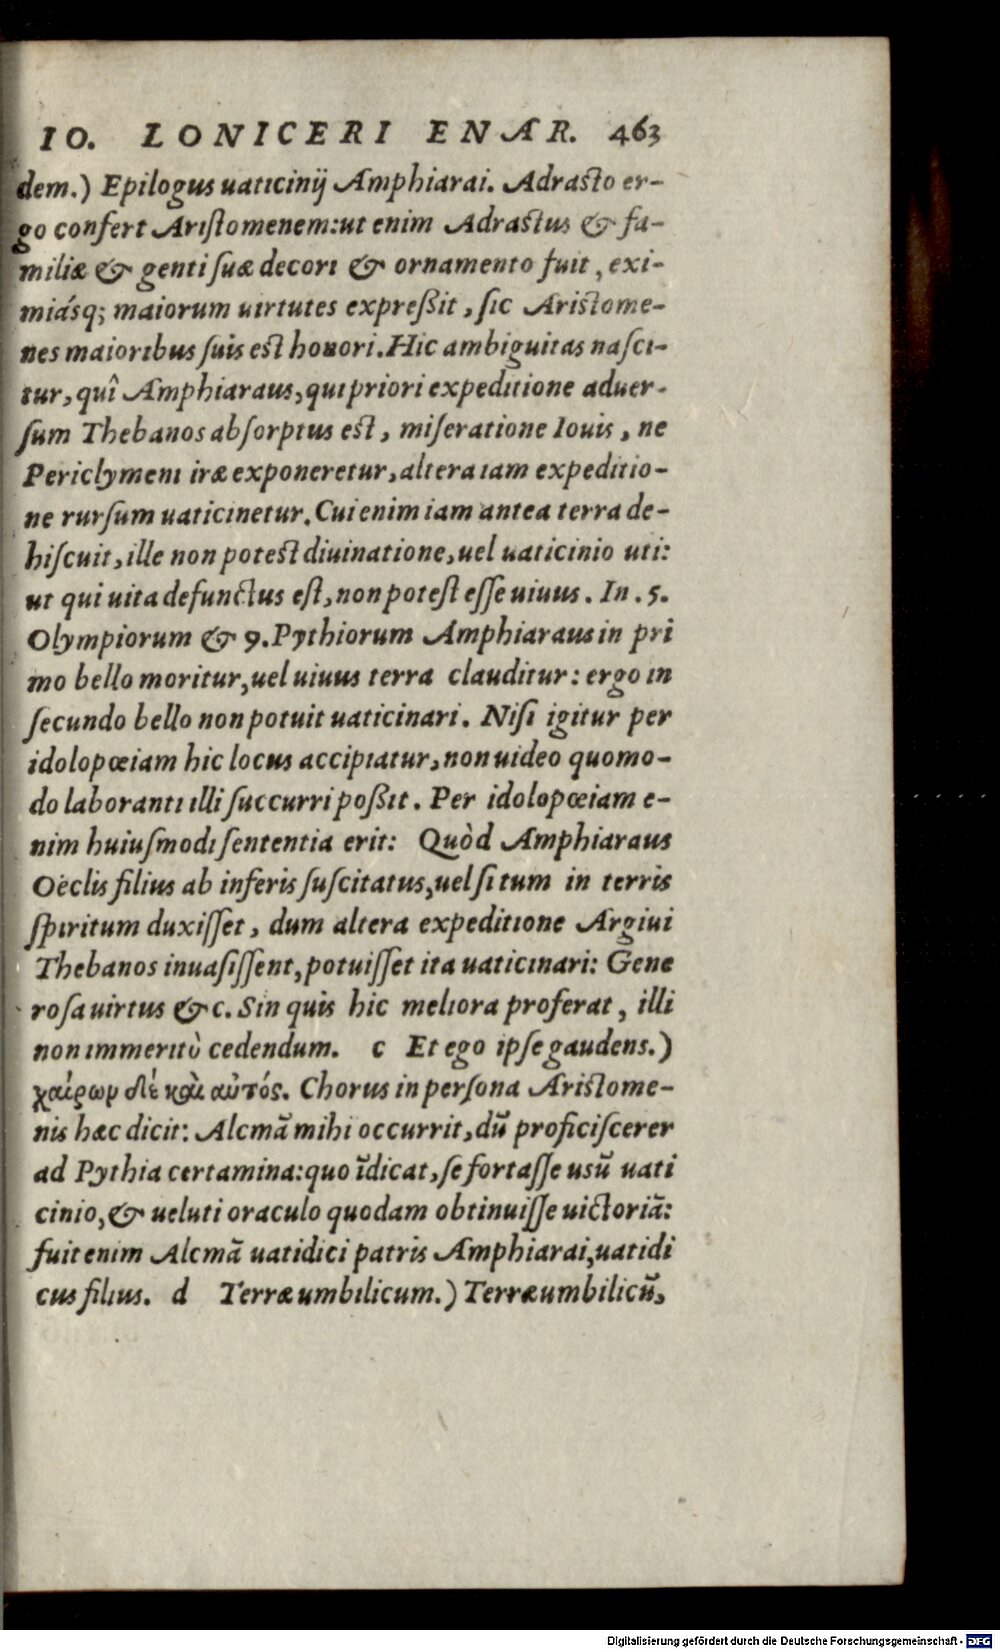 IO. LONICERI ENAR. 463
dem.) Epilogus uaticinij Amphiarai. Adrasto er-
go confert Aristomenem: ut enim Adrastus & fa-
miliæ & genti suæ decori & ornamento fuit, exi-
miásq; maiorum uirtutes expreßit, sic Aristome-
nes maioribus suis est honori. Hic ambiguitas nasci-
tur, quî Amphiaraus, qui priori expeditione aduer-
sum Thebanos absorptus est, miseratione Iouis, ne
Periclymeni iræ exponeretur, altera iam expeditio-
ne rursum uaticinetur. Cui enim iam antea terra de-
hiscuit, ille non potest diuinatione, uel uaticinio uti:
ut qui uita defunctus est, non potest esse uiuus. In .5.
Olympiorum & 9. Pythiorum Amphiaraus in pri
mo bello moritur, uel uiuus terra clauditur: ergo in
secundo bello non potuit uaticinari. Nisi igitur per
idolopœiam hic locus accipiatur, non uideo quomo-
do laboranti illi succurri poßit. Per idolopœiam e-
nim huiusmodi sententia erit: Quòd Amphiaraus
Oëclis filius ab inferis suscitatus, uel si tum in terris
spiritum duxisset, dum altera expeditione Argiui
Thebanos inuasissent, potuisset ita uaticinari: Gene
rosa uirtus &c. Sin quis hic meliora proferat, illi
non immeritò cedendum. c Et ego ipse gaudens.)
χαίρων δὲ καὶ αὐτός. Chorus in persona Aristome-
nis hæc dicit: Alcmã mihi occurrit, dũ proficiscerer
ad Pythia certamina: quo ĩdicat, se fortasse usũ uati
cinio, & ueluti oraculo quodam obtinuisse uictoriã:
fuit enim Alcmã uatidici patris Amphiarai, uatidi
cus filius. d Terræ umbilicum.) Terræ umbilicũ,
Digitalisierung gefördert durch die Deutsche Forschungsgemeinschaft - DFG